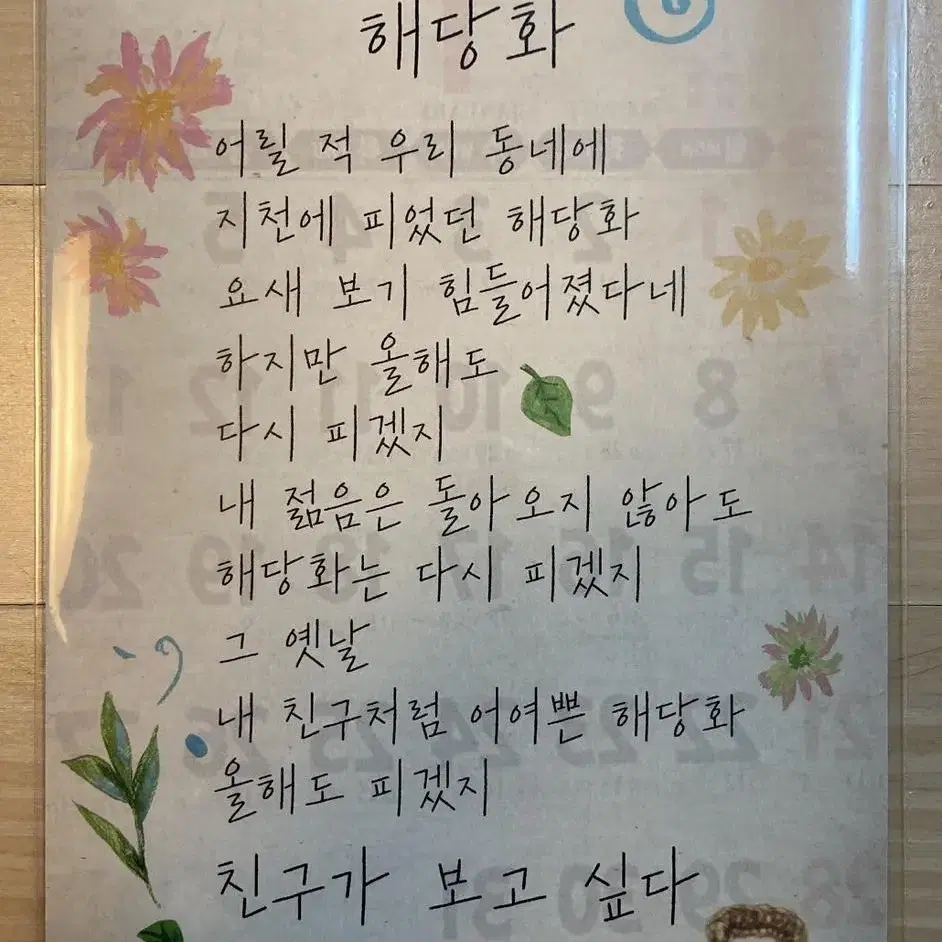 해당화
어릴 적 우리 동네에
지천에 피었던 해당화
요새 보기 힘들어졌다네
하지만 올해도
다시 피겠지
내 젊음은 돌아오지 않아도
해당화는 다시 피겠지
그 옛날
내 친구처럼 어여쁜 해당화
올해도 피겠지
친구가 보고 싶다